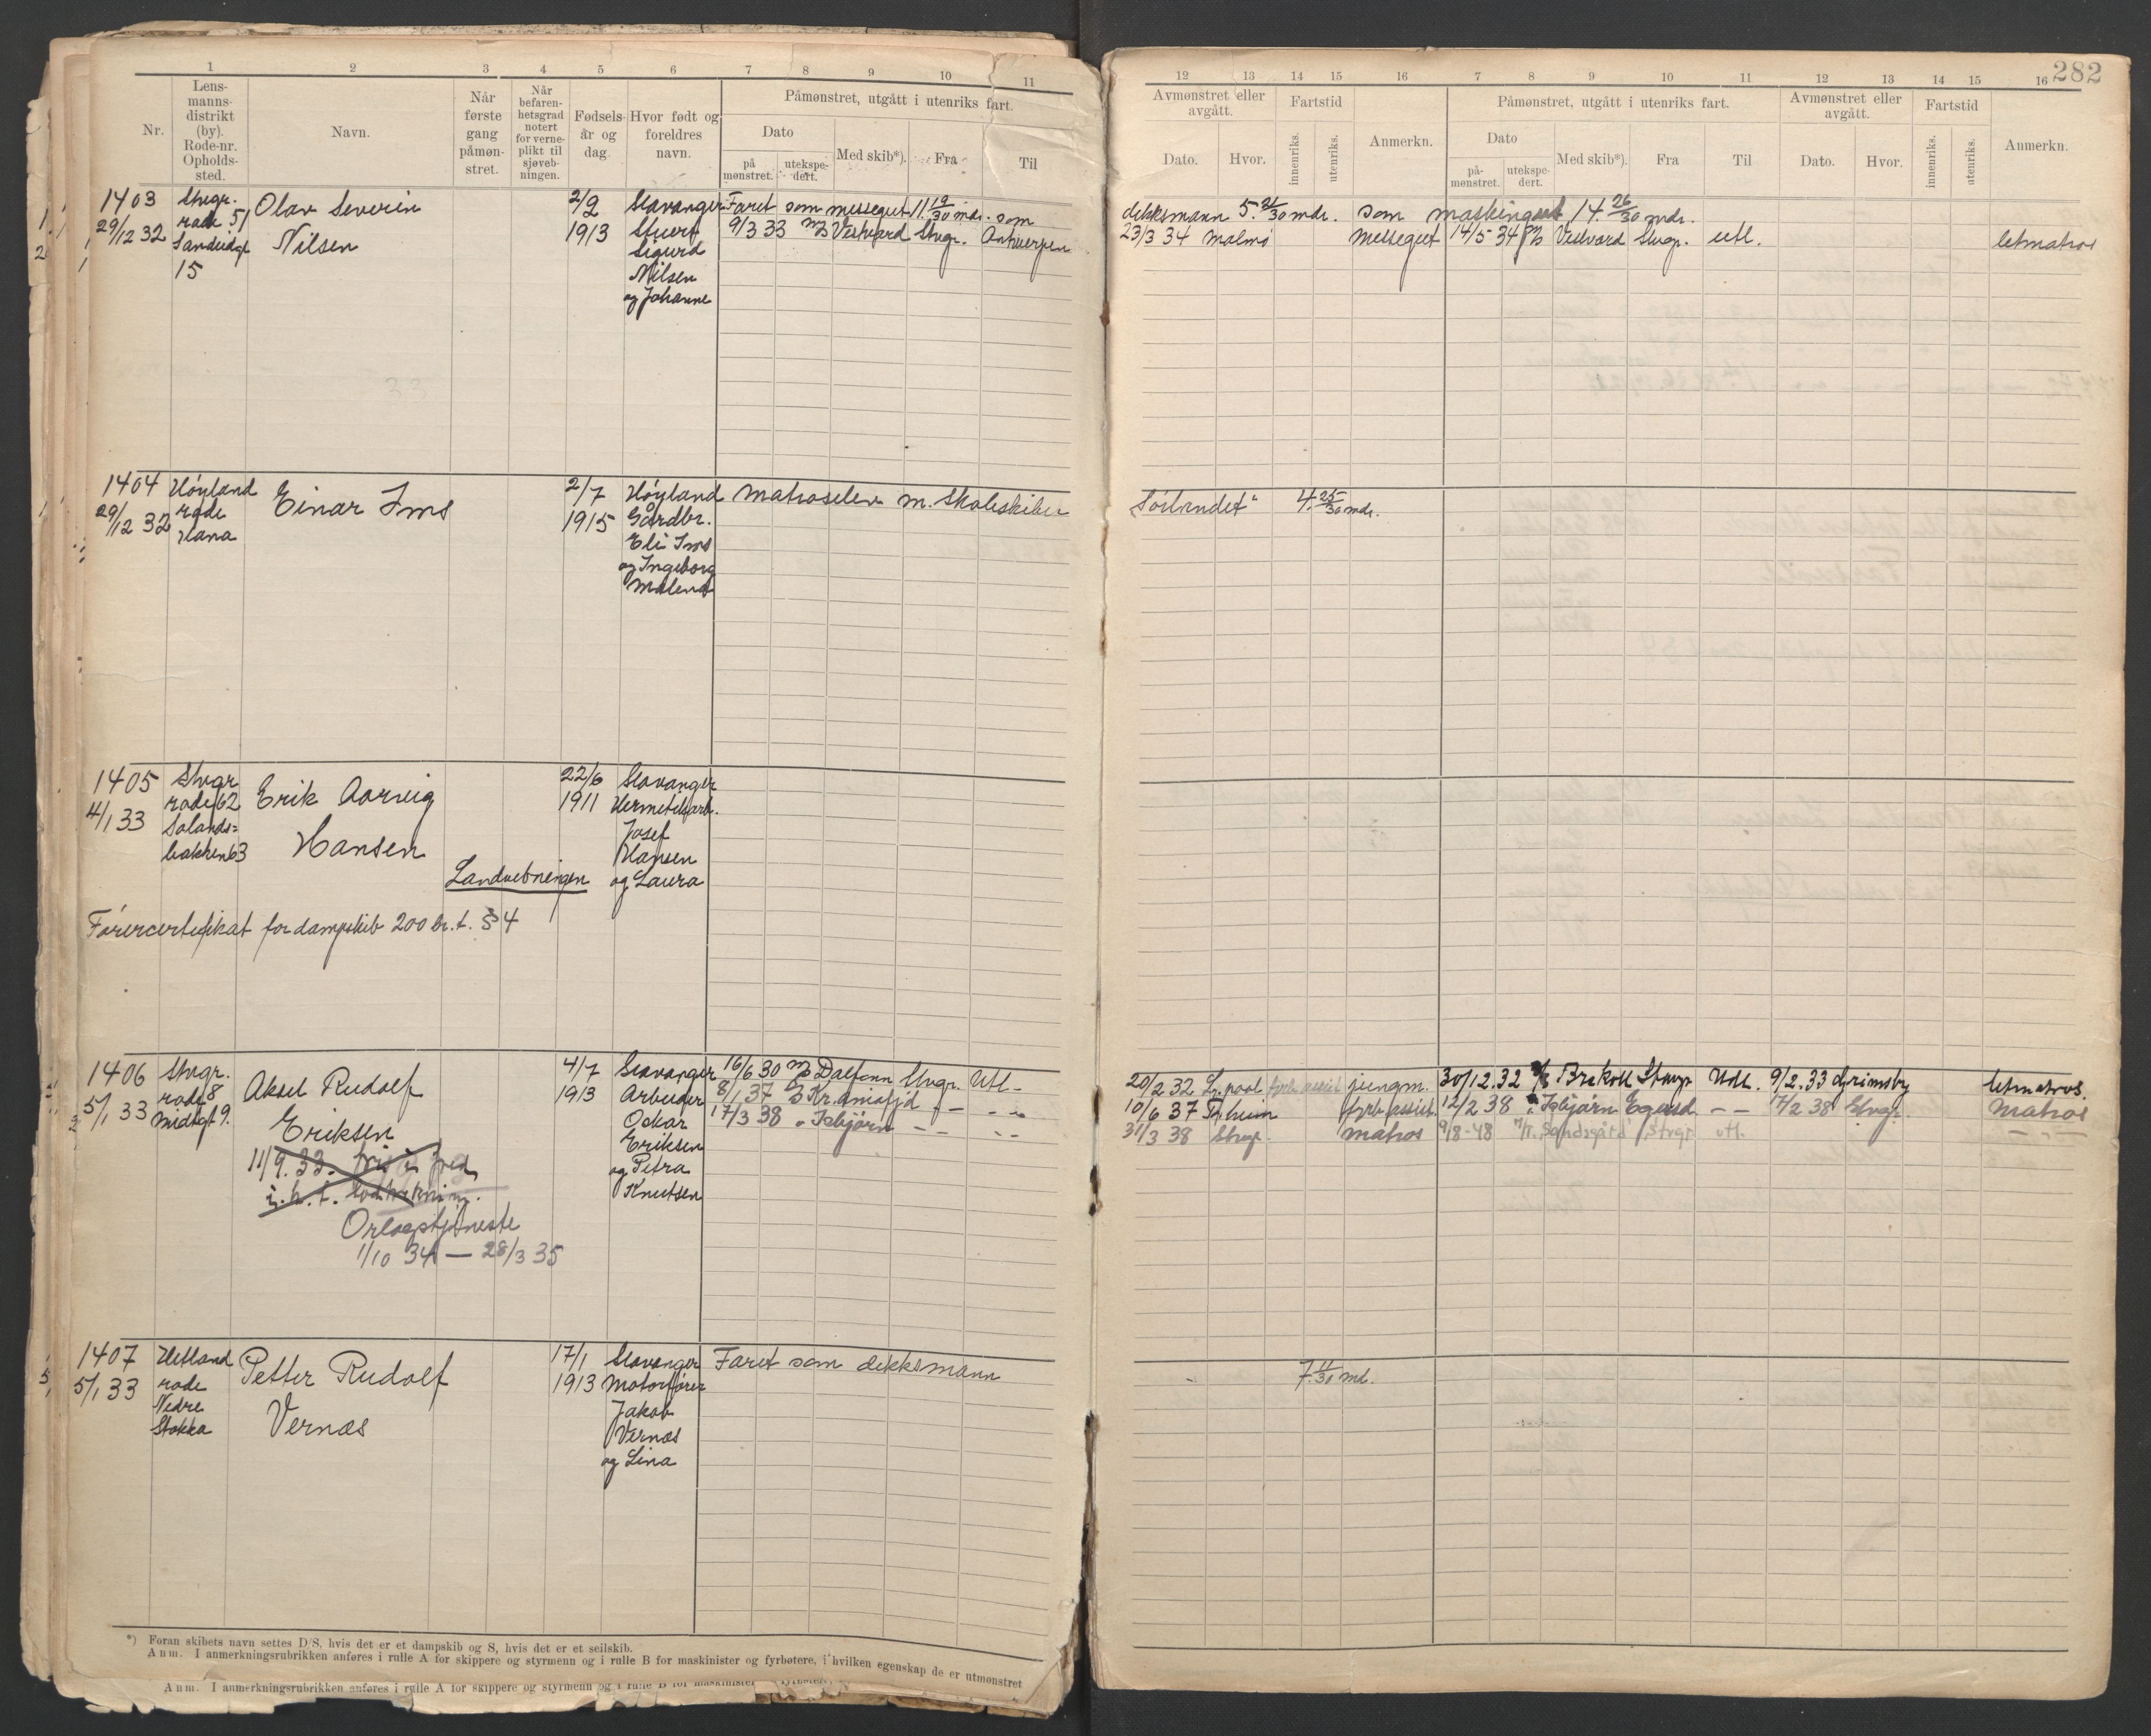 1 2 3 4 5 6 7 8 9 10 11
Nr.
Lens-
manns-
distrikt
(by).
Rode-nr.
Opholds-
sted.
Navn.
Når
første
gang
påmøn-
stret.
Når
befaren-
hetsgrad
notert
for verne-
plikt til
sjøveb-
ningen.
Fødsels-
år og
dag.
Hvor født og
foreldres
navn.
Påmønstret, utgått i utenriks fart.
Dato
på
mønstret.
utekspe-
dert.
Med skib*).
Fra
Til
1403 Stvgr. Olav Severin 2/2 Stavanger Faret som messegut 11 19/30 mdr. som
29/12 32 rode 51 Nilsen 1913 Stuert 9/3 33 M/S Vestvard Stvgr. Antwerpen
Sandvidgt
15
Sigurd
Nilsen
og Johanne
1404 Høyland Einar Ims 2/7 Høyland Matroselev m. Skoleskibet
29/12 32 rode 1915 Gårdbr.
Hana
Eli Ims
og Ingeborg
Malena
1405 Stvgr Erik Aarvig 22/6 Stavanger
4/1 33 rode 62 Hansen 1911 Hermetikarb.
Solands=
bakken 63
Josef
Hansen
og Laura
Landvebningen
Førercertifikat for dampskib 200 br. t. § 4
1406 Stvgr. Aksel Rudolf 4/7 Stavanger 16/6 30 M/S Dalfonn Stvgr. Utl.
5/1 33 rode 8 Eriksen 1913 Arbeider 8/1 37 Kr.aniafjd — - -
Midtgt 9. Oskar 17/3 38 " Isbjørn — — - -
Eriksen
og Petra
Knutsen
11/9.33. fri i fred
i. h. t. lodtrekning.
Orlogstjeneste
1/10 34 — 28/3 35
1407 Hetland Petter Rudolf 17/1 Stavanger Faret som dekksmann
5/1 33 rode Vernæs 1913 Motorfører
Nedre
Stokka
Jakob
Vernæs
og Lina
*) Foran skibets navn settes D/S, hvis det er et dampskib og S, hvis det er et seilskib.
Anm. I anmerkningsrubrikken anføres i rulle A for skippere og styrmenn og i rulle B for maskinister og fyrbøtere, i hvilken egenskap de er utmønstret
Anm. I anmerkningsrubrikken anføres i rulle A for skippere og styrmenn og i rulle B for maskinister
282
12 13 14 15 16 7 8 9 10 11 12 13 14 15 16
Avmønstret eller
avgått.
Dato.
Hvor.
Fartstid
innenriks.
utenriks.
Anmerkn.
Påmønstret, utgått i utenriks fart.
Dato
på-
mønstret.
utekspe-
dert.
Med skib*).
Fra
Til
Avmønstret eller
avgått.
Dato.
Hvor.
Fartstid
innenriks.
utenriks.
Anmerkn.
dekksmann 5. 21/30 mdr. som maskingutt 14. 26/30 mdr.
23/3 34 Malmø Messegut 14/5 34 M/S Vestvard Stvgr. utl. letmatros
Sørlandet" 4. 25/30 mdr.
20/2 32 L.pool jungm. 30/12.32 Stavgr Utl. 9/2.33 Grimsby letmatros.
10/6 37 Tr.heim fyrb.assist. 12/2 38 " Isbjørn Egersd. — — 17/2 38 Stvgr. Matros
31/3 38 Stvgr. matros 9/8-48 M/T. Sandsgård Stvgr utl. — " —
7. 11/30 md.